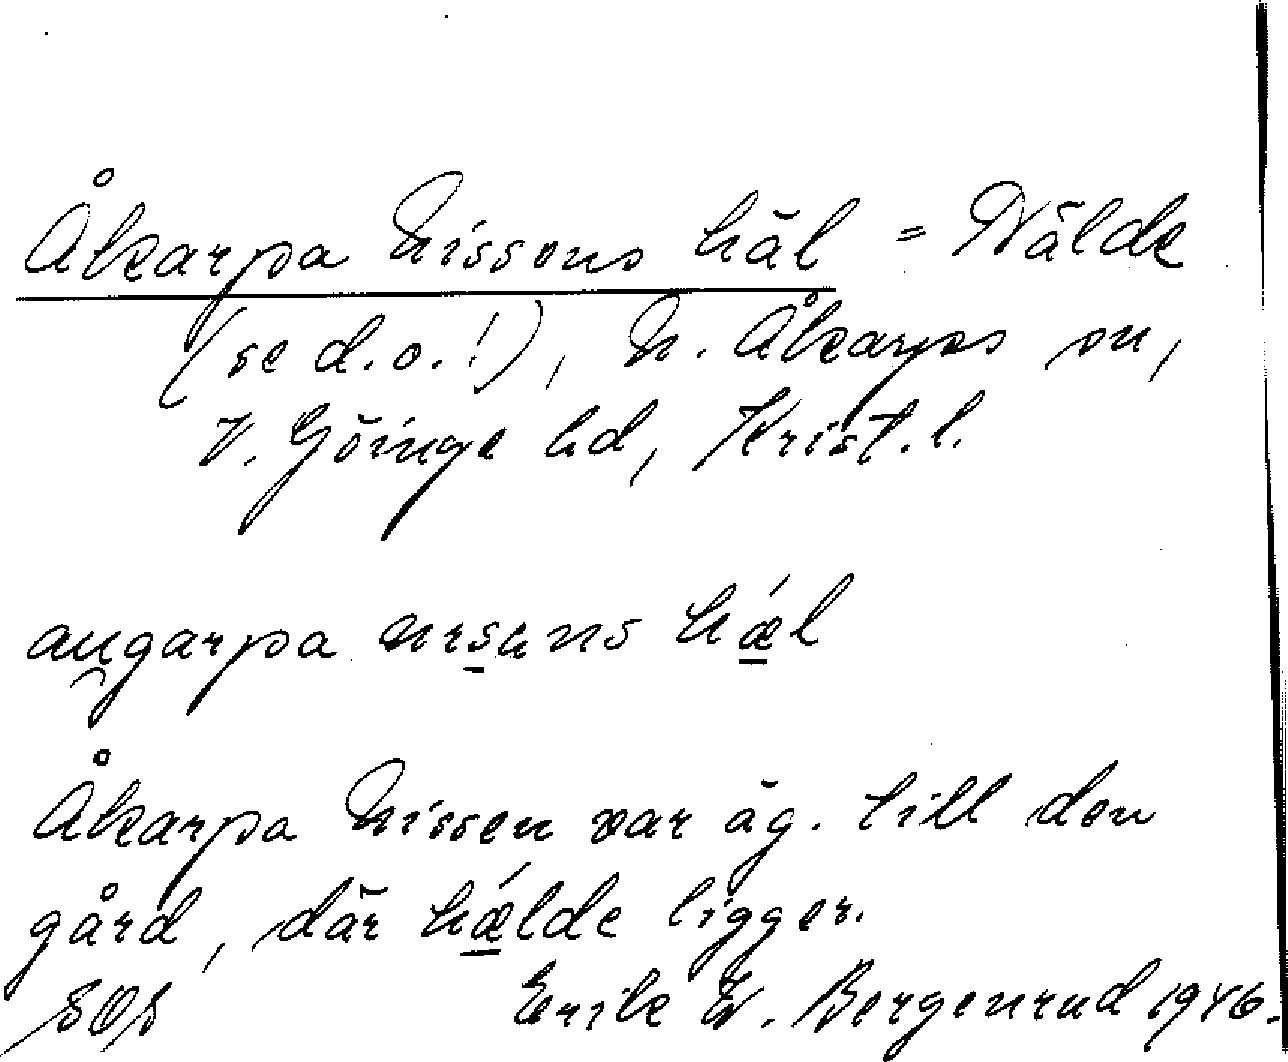 Åkarpa Nissens häl = Välde
(se d.o.!), N. Åkarps sn,
V. Göinge hd, Krist. l.
aųgarpa nısns hǽl
Åkarpa Nissen var äg. till den
gård, där hǽlde ligger.
Erik W. Bergenrud 1946.